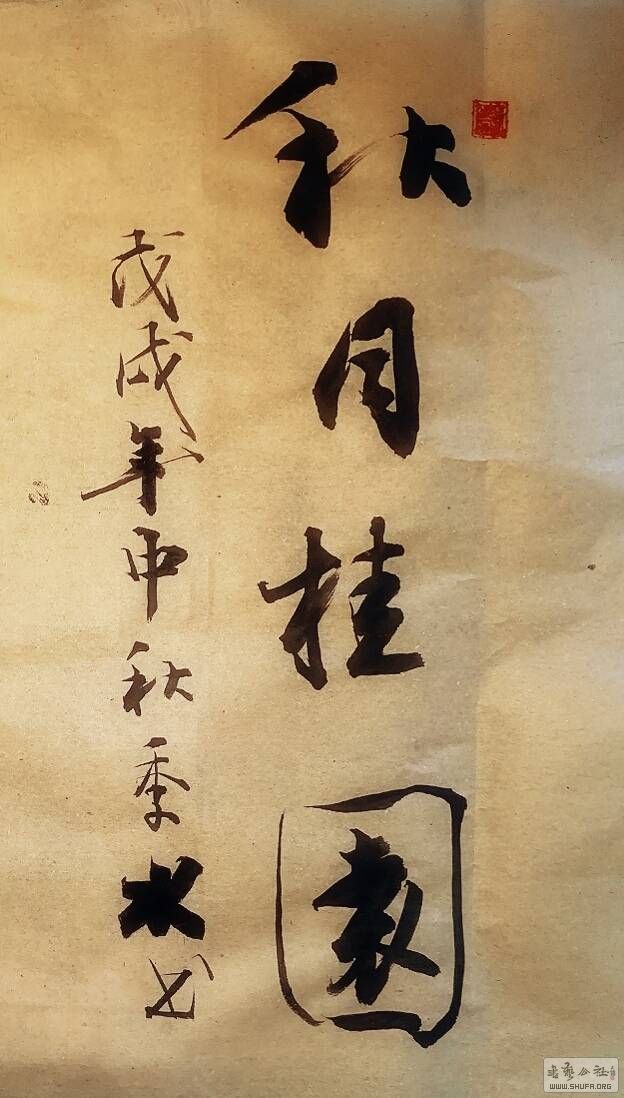 秋月桂園
戊戌年中秋季水书
书艺公社
WWW.SHUFA.ORG